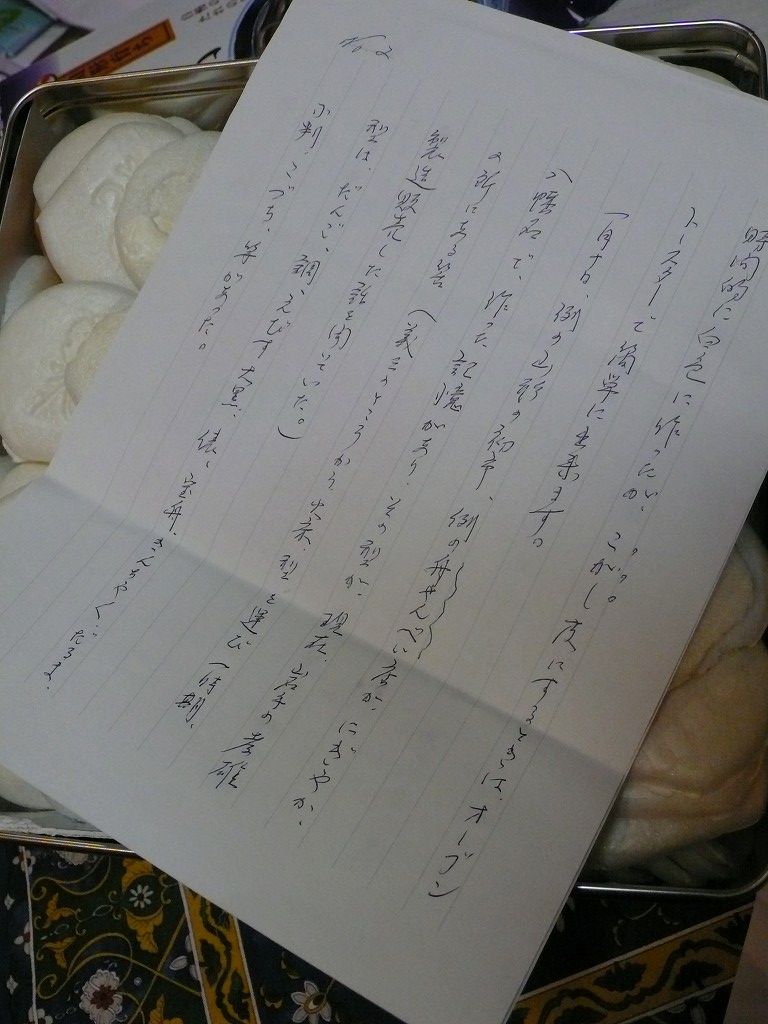 No.2
時間的に白色に作ったが、こがし度にするときは、オーブン
トースターで簡単に出来ます。
一月十日、例の山形の初市、例の舟せんべい店が、にぎやか、
八幡石で、作った記憶があり、その型が、現在、岩手の孝雄
の所にある筈(義三のところから火赤、型を運び一時期、
製造販売した話を聞いていた。)
型は、だんご、鯛、えびす大黒、俵、宝舟、きんちゃく、だるま、
小判、こづち、等があった。